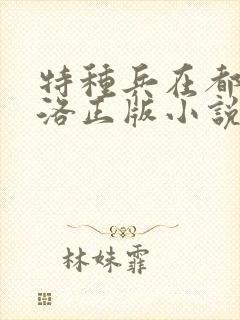 特種兵在都
洛正版小說
林妹霏